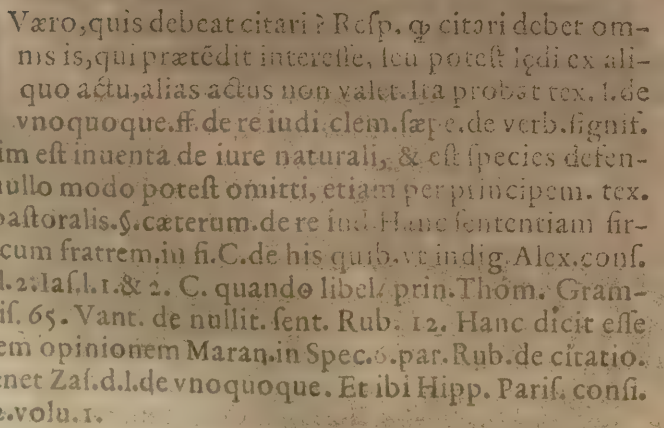 Væro,quis debeat citari ? Resp. ꝙ citari debet om-
nis is,qui prætēdit interesse, seu potest lędi ex ali-
quo actu,alias actus non valet.Ita probat tex. l.de
vnoquoque.ff.de re iudi.clem.sæpe.de verb.signif.
im est inuenta de iure naturali, & est species defen-
nullo modo potest omitti, etiam per principem. tex.
pastoralis.§.cæterum.de re iud.Hanc sententiam fir-
cum fratrem.in fi.C.de his quib.vt indig.Alex.cons.
l.2.Ias.l.1.& 2. C. quando libel. prin.Thom. Gram-
is. 65. Vant. de nullit. sent. Rub. 12. Hanc dicit esse
em opinionem Maran.in Spec.6.par.Rub.de citatio.
enet Zas.d.l.de vnoquoque. Et ibi Hipp. Paris. consi.
.volu.1.